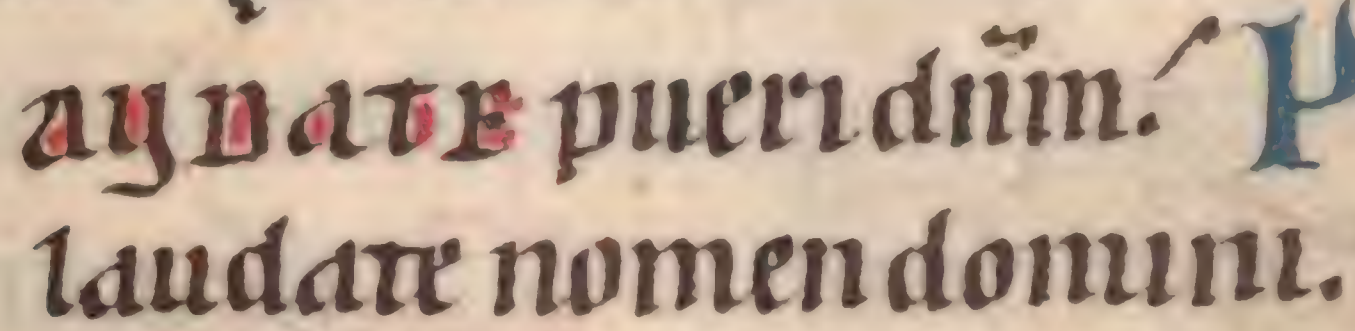 auDate pueri dn̄m. P
laudate nomen domini.